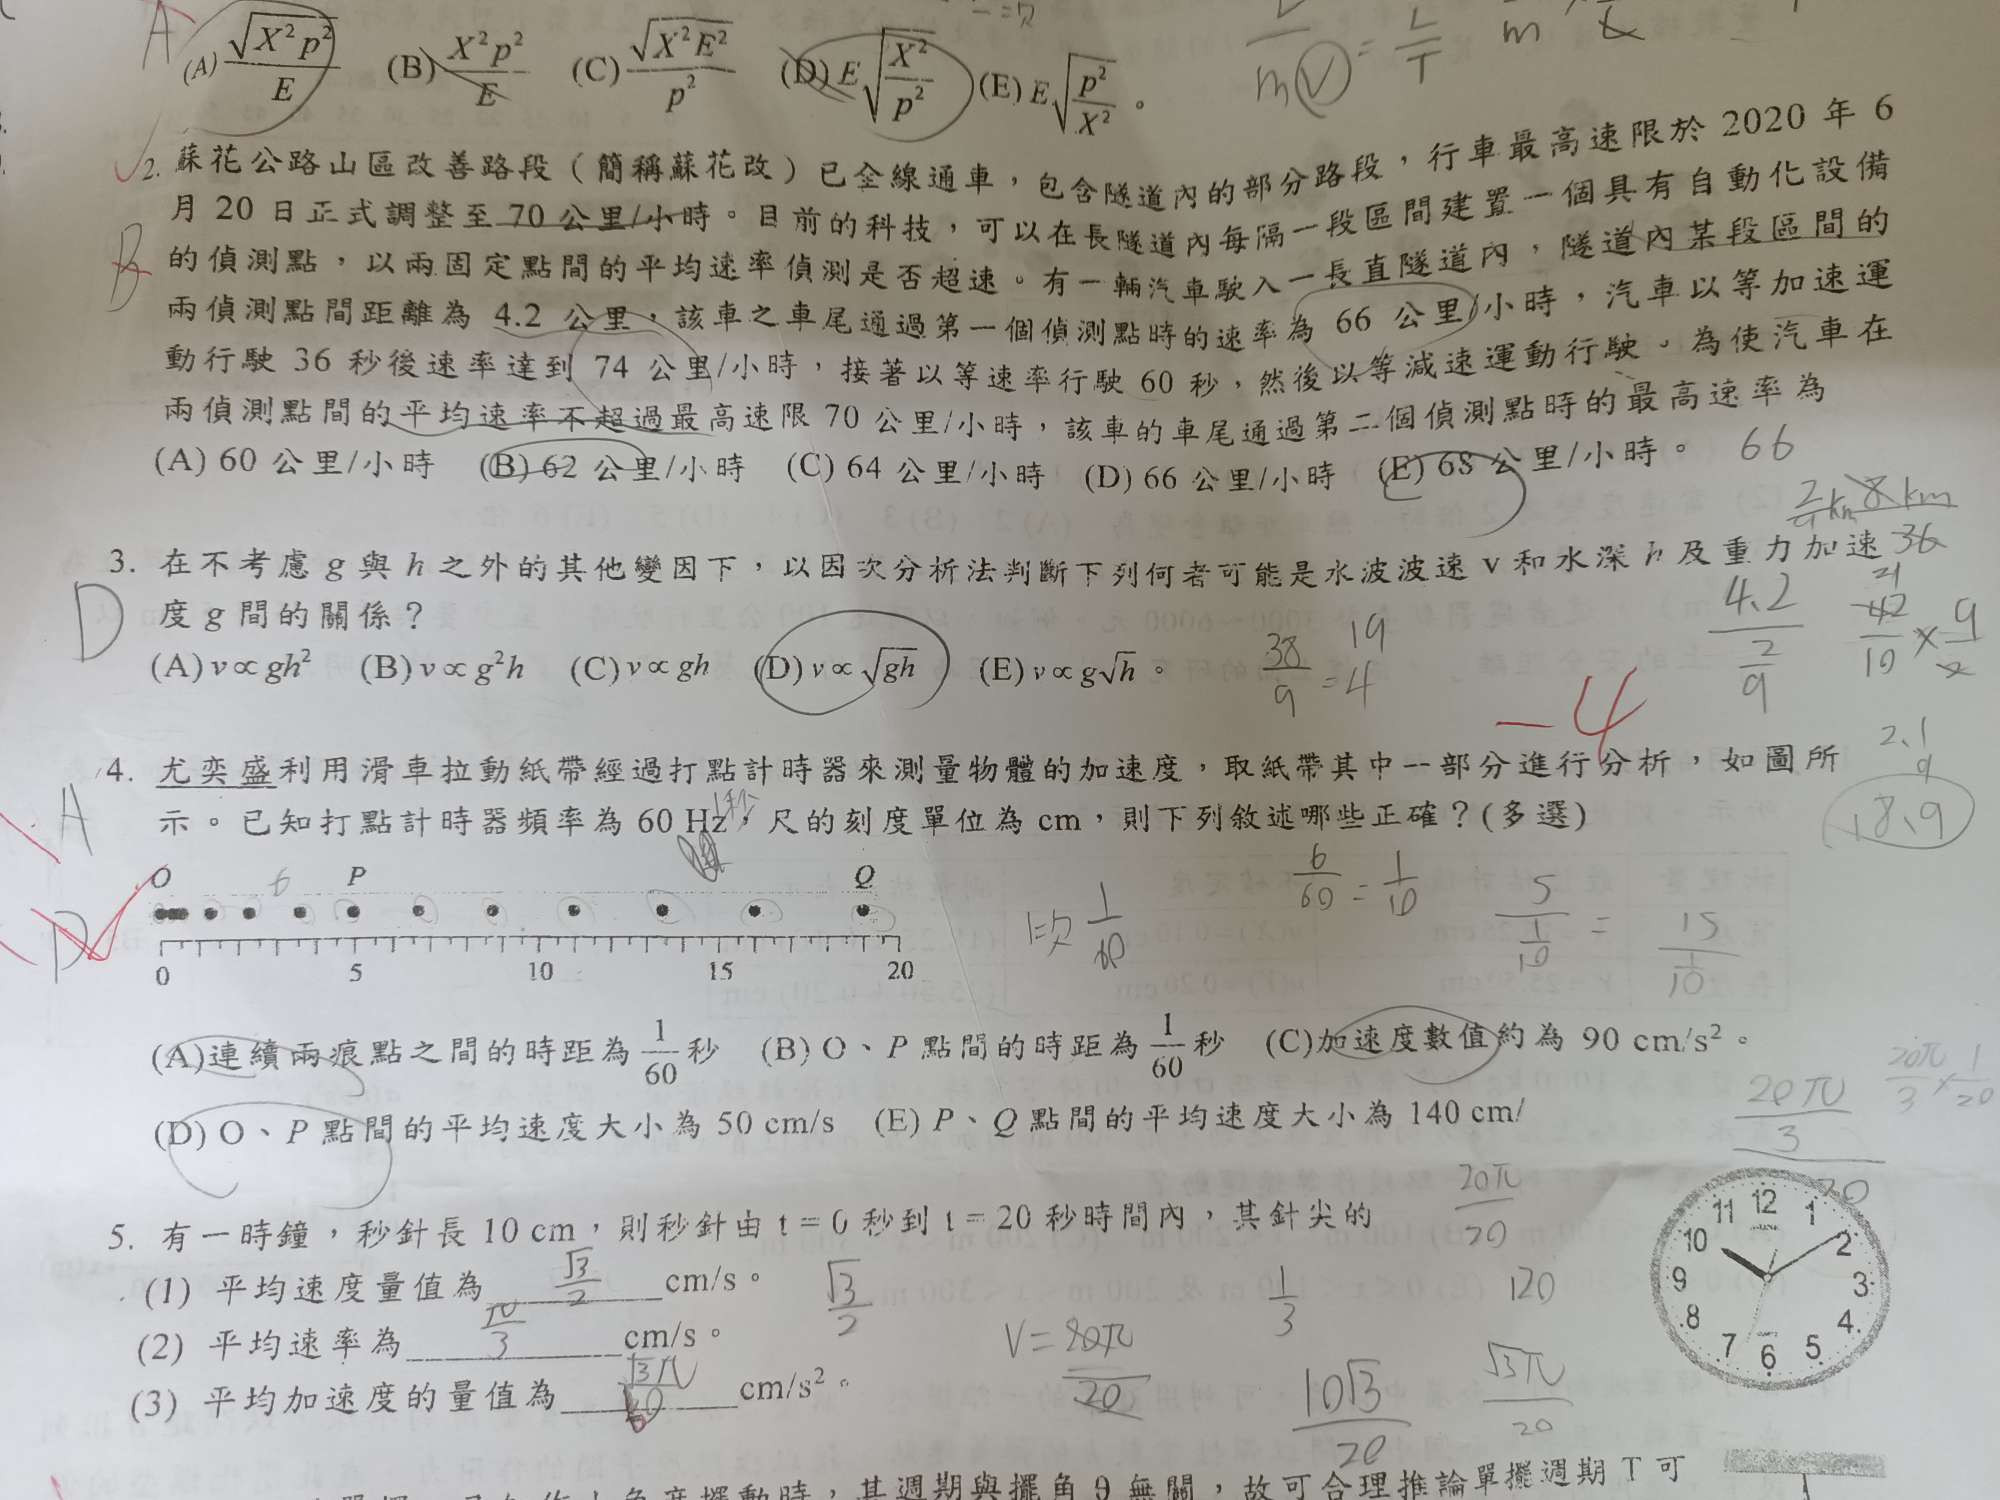 A
(A) √(X²p²)/E (B) X²p²/E (C) √(X²E²)/p² (D) E√(X²/p²) (E) E√(p²/X²)。
2. 蘇花公路山區改善路段(簡稱蘇花改)已全線通車,包含隧道內的部分路段,行車最高速限於 2020 年 6
月 20 日正式調整至 70 公里/小時。目前的科技,可以在長隧道內每隔一段區間建置一個具有自動化設備
的偵測點,以兩固定點間的平均速率偵測是否超速。有一輛汽車駛入一長直隧道內,隧道內某段區間的
B
兩偵測點間距離為 4.2 公里,該車之車尾通過第一個偵測點時的速率為 66 公里/小時,汽車以等加速運
動行駛 36 秒後速率達到 74 公里/小時,接著以等速率行駛 60 秒,然後以等減速運動行駛。為使汽車在
兩偵測點間的平均速率不超過最高速限 70 公里/小時,該車的車尾通過第二個偵測點時的最高速率為
(A) 60 公里/小時 (B) 62 公里/小時 (C) 64 公里/小時 (D) 66 公里/小時 (E) 68 公里/小時。 66
3. 在不考慮 g 與 h 之外的其他變因下,以因次分析法判斷下列何者可能是水波波速 v 和水深 h 及重力加速
D
度 g 間的關係?
(A) v∝gh² (B) v∝g²h (C) v∝gh (D) v∝√gh (E) v∝g√h。
38/9 = 4
19
4.2
2/9
42/10 × 9/2
21
2.1
9
18.9
-4
4. 尤奕盛利用滑車拉動紙帶經過打點計時器來測量物體的加速度,取紙帶其中一部分進行分析,如圖所
A
示。已知打點計時器頻率為 60 Hz,尺的刻度單位為 cm,則下列敘述哪些正確?(多選)
O 6 P Q
D
0 5 10 15 20
1次 1/60
6/60 = 1/10
5/(1/10) = 15/(1/10)
(A)連續兩痕點之間的時距為 1/60 秒 (B) O、P 點間的時距為 1/60 秒 (C)加速度數值約為 90 cm/s²。
(D) O、P 點間的平均速度大小為 50 cm/s (E) P、Q 點間的平均速度大小為 140 cm/
20π/3
20
20π/3 × 1/20
5. 有一時鐘,秒針長 10 cm,則秒針由 t = 0 秒到 t = 20 秒時間內,其針尖的
20π/20
(1) 平均速度量值為 √3/2 cm/s。
(2) 平均速率為 π/3 cm/s。
(3) 平均加速度的量值為 √3π/60 cm/s²。
√3/2
1/3
120
10√3/20
√3π/20
12 1 2 3 4 5 6 7 8 9 10 11
其週期與擺角 θ 無關,故可合理推論單擺週期 T 可